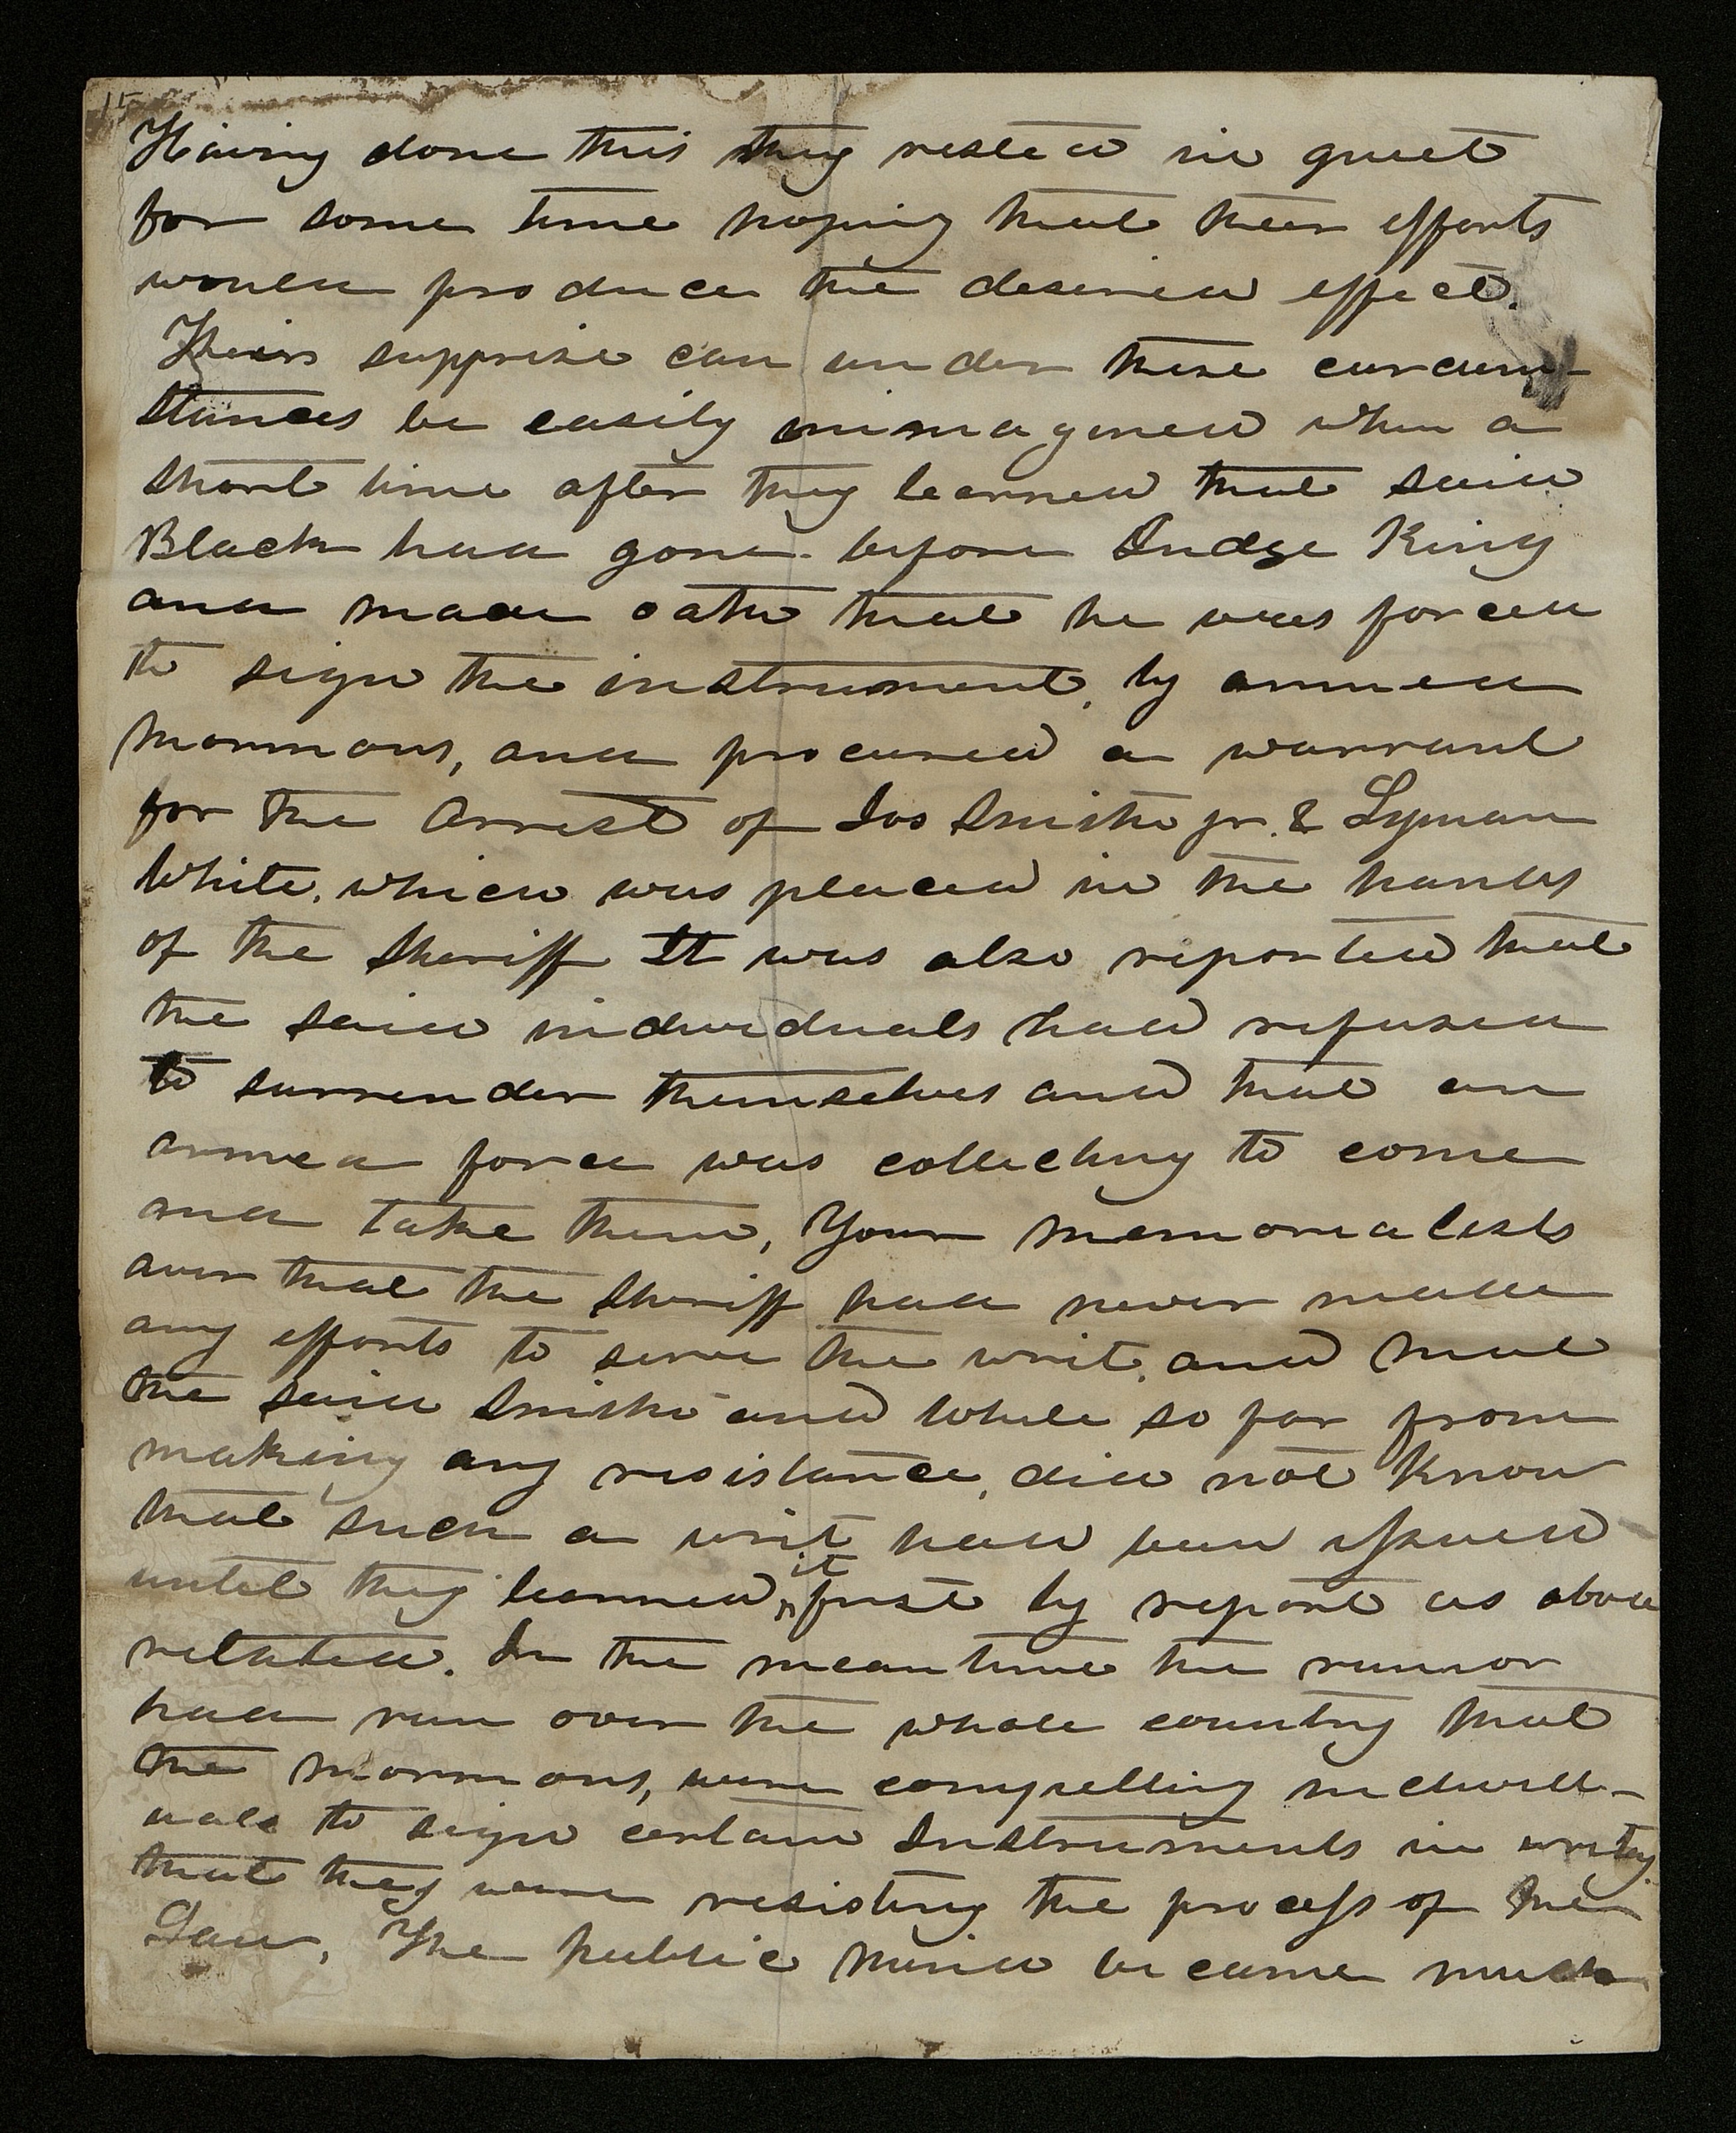 15
Having done this they rested in quiet
for some time hoping that their efforts
would produce the desired effect.
Their supprise can under these circum-
stances be easily immagined when a
short time after they learned that said
Black had gone before Judge King
and made oath that he was forced
to sign the instrument, by armed
mormons, and procured a warrant
for the Arrest of Jos Smith jr. & Lyman
White, which was placed in the hands
of the Sheriff It was also reported that
the said individuals had refused
to surrender themselves and that an
armed force was collecting to come
and take them, Your memorialists
aver that the Sheriff had never made
any efforts to serve the writ, and that
the said Smith and White so far from
making any resistance, did not know
that such a writ had been issued
until they learned it first by report as above
related. In the mean time the rumor
had run over the whole country that
the mormons, were compelling individ-
uals to sign certain Instruments in writing
that they were resisting the process of the
Law, The public mind became much